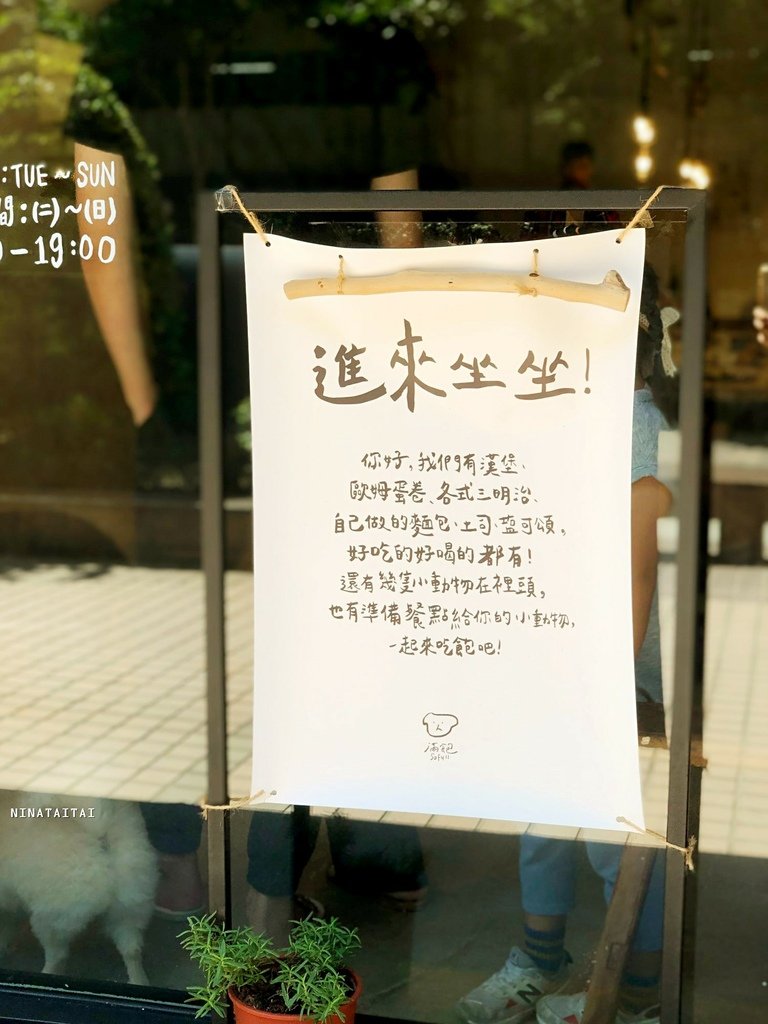 :TUE~SUN
間:(二)~(日)
-19:00
進來坐坐!
你好,我們有漢堡、
歐姆蛋卷、各式三明治、
自己做的麵包、土司、鹽可頌。
好吃的好喝的都有!
還有幾隻小動物在裡頭。
也有準備餐點給你的小動物。
一起來吃飽吧!
滿飽
Sofull
NINATAITAI
N